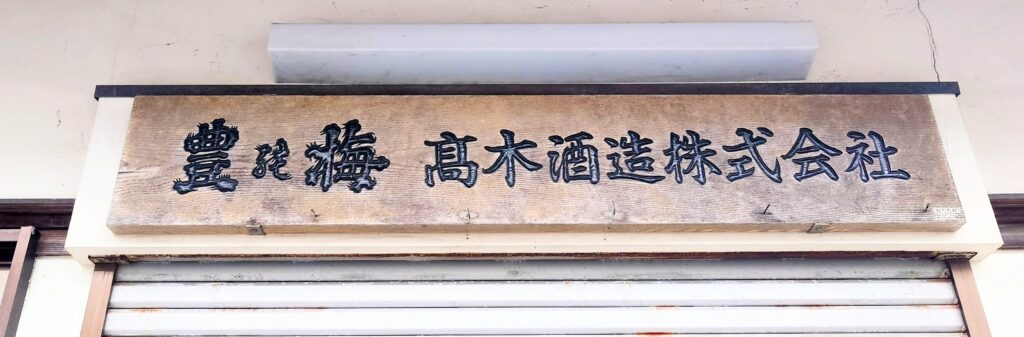 豊能梅 髙木酒造株式会社